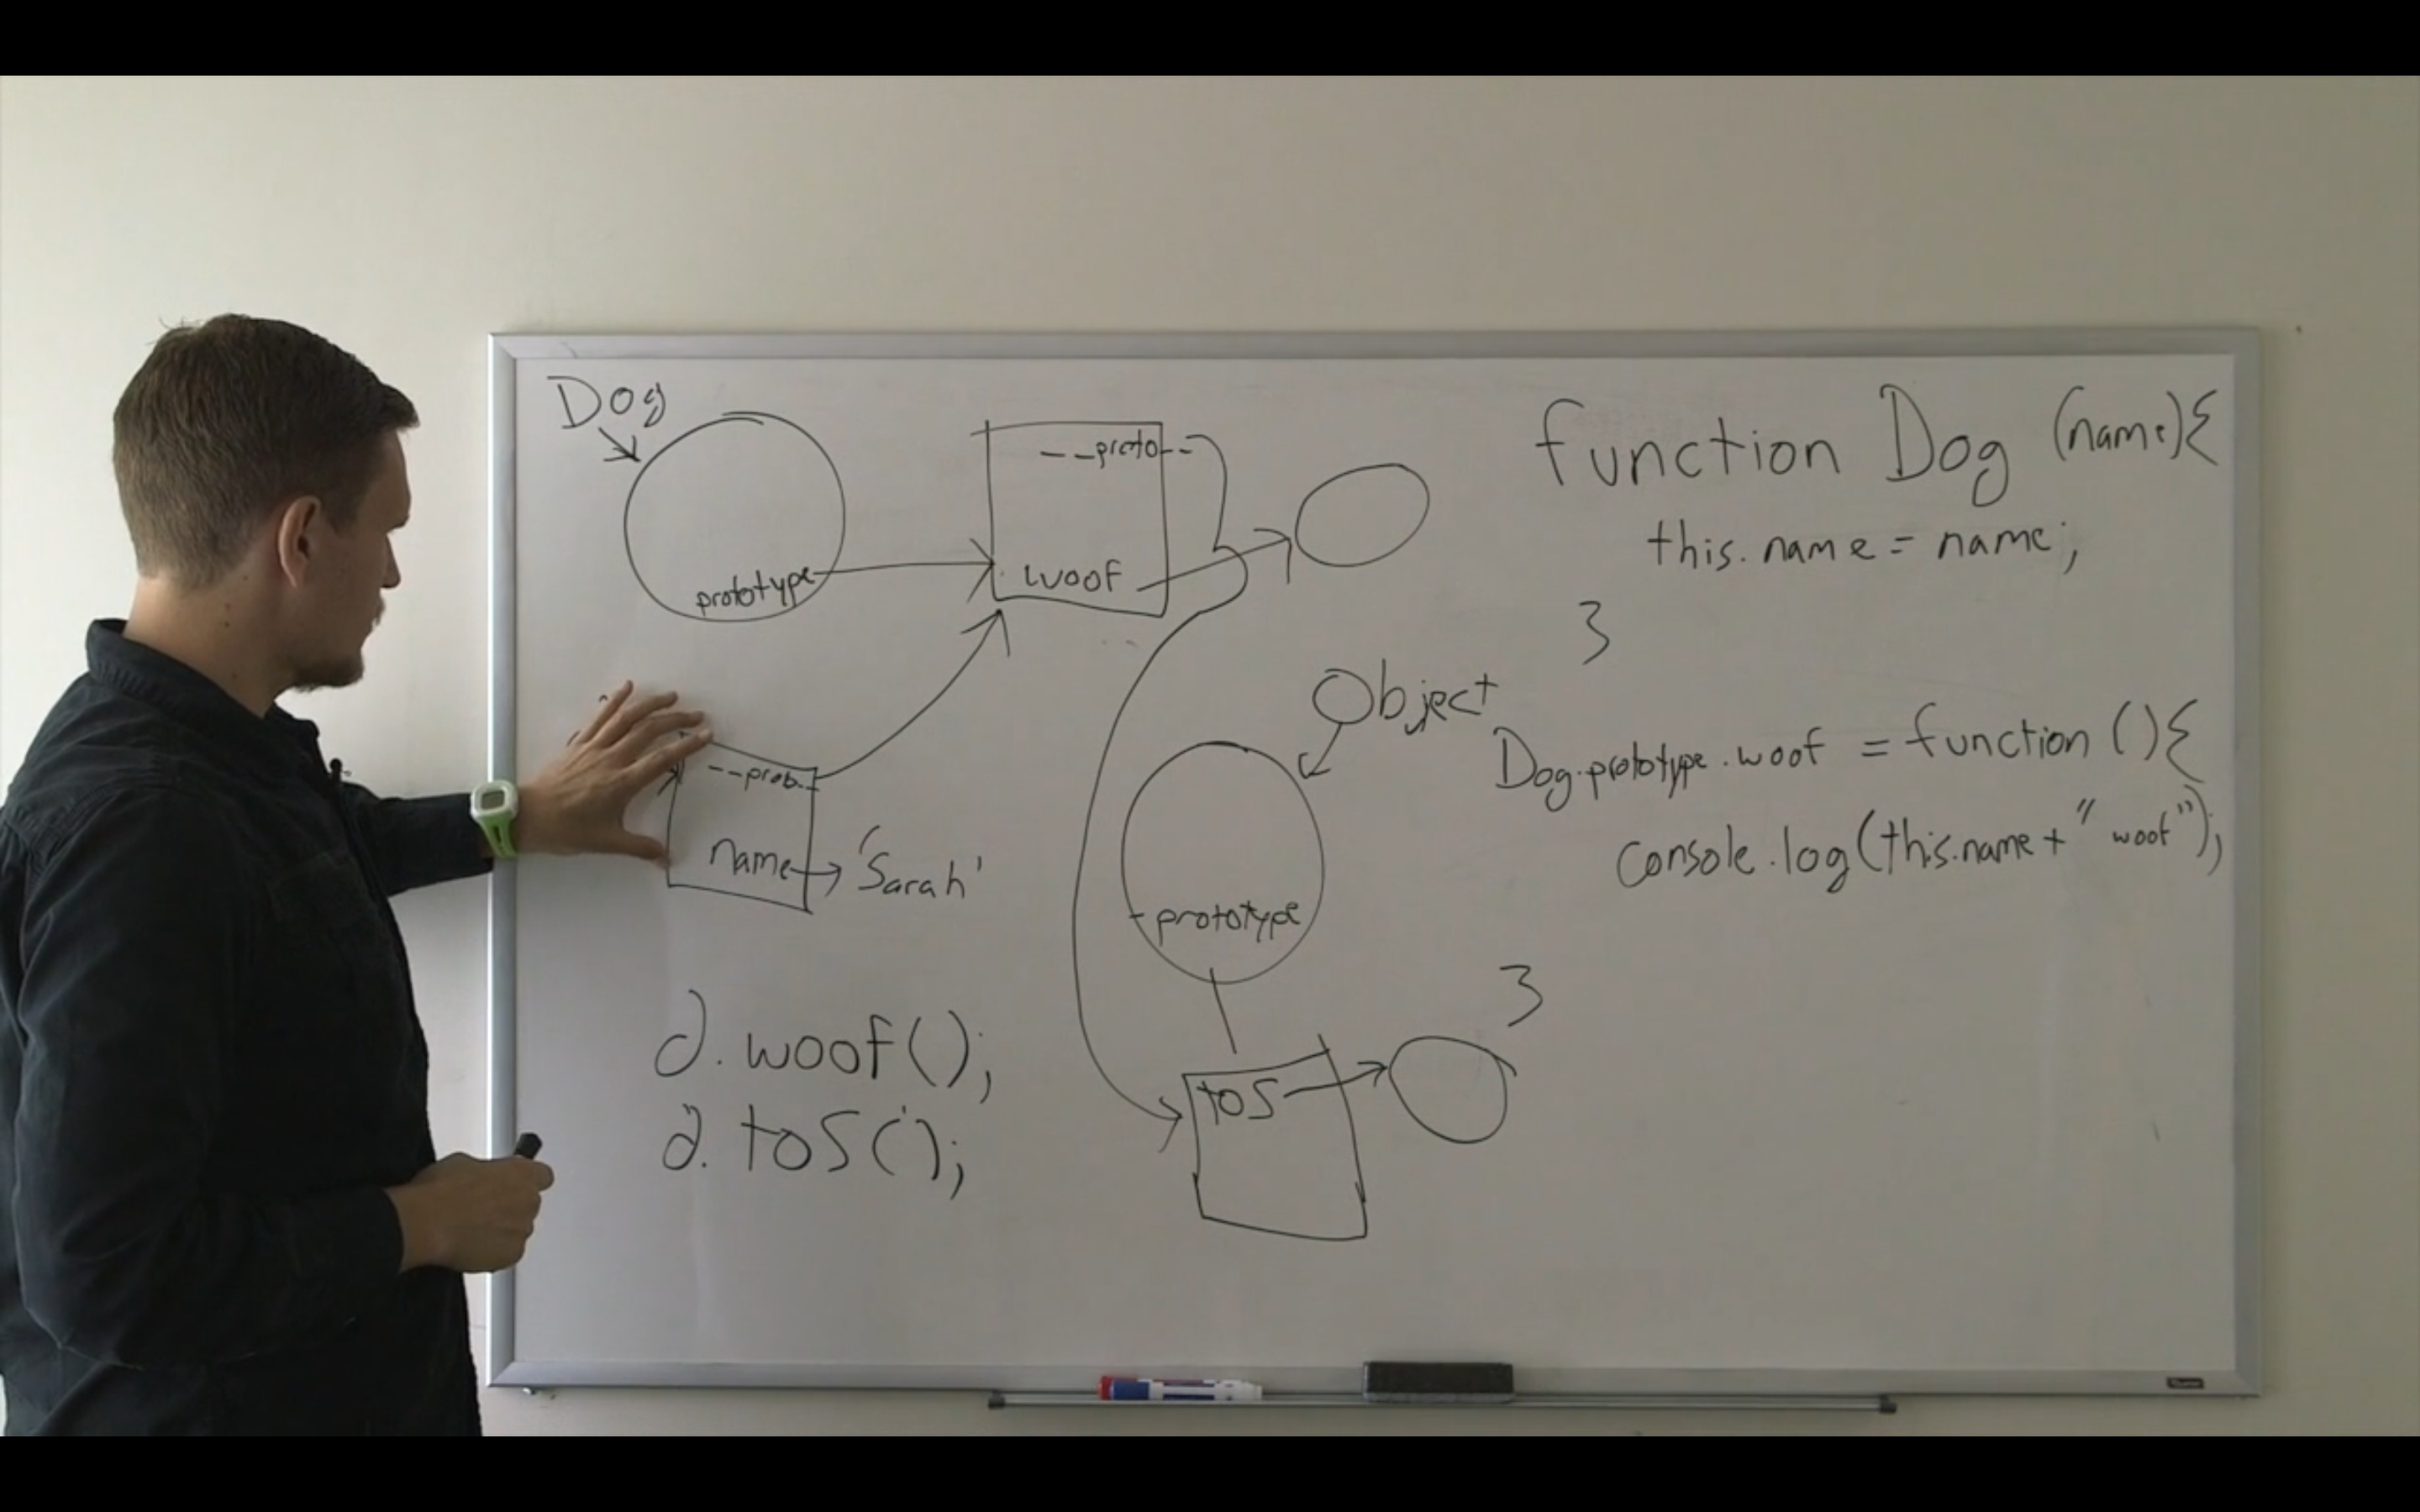 Dog
prototype
__proto__
woof
__proto__
name → 'Sarah'
d.woof();
d.toS();
Object
prototype
toS
function Dog (name){
this.name = name;
}
Dog.prototype.woof = function (){
console.log(this.name + " woof");
}